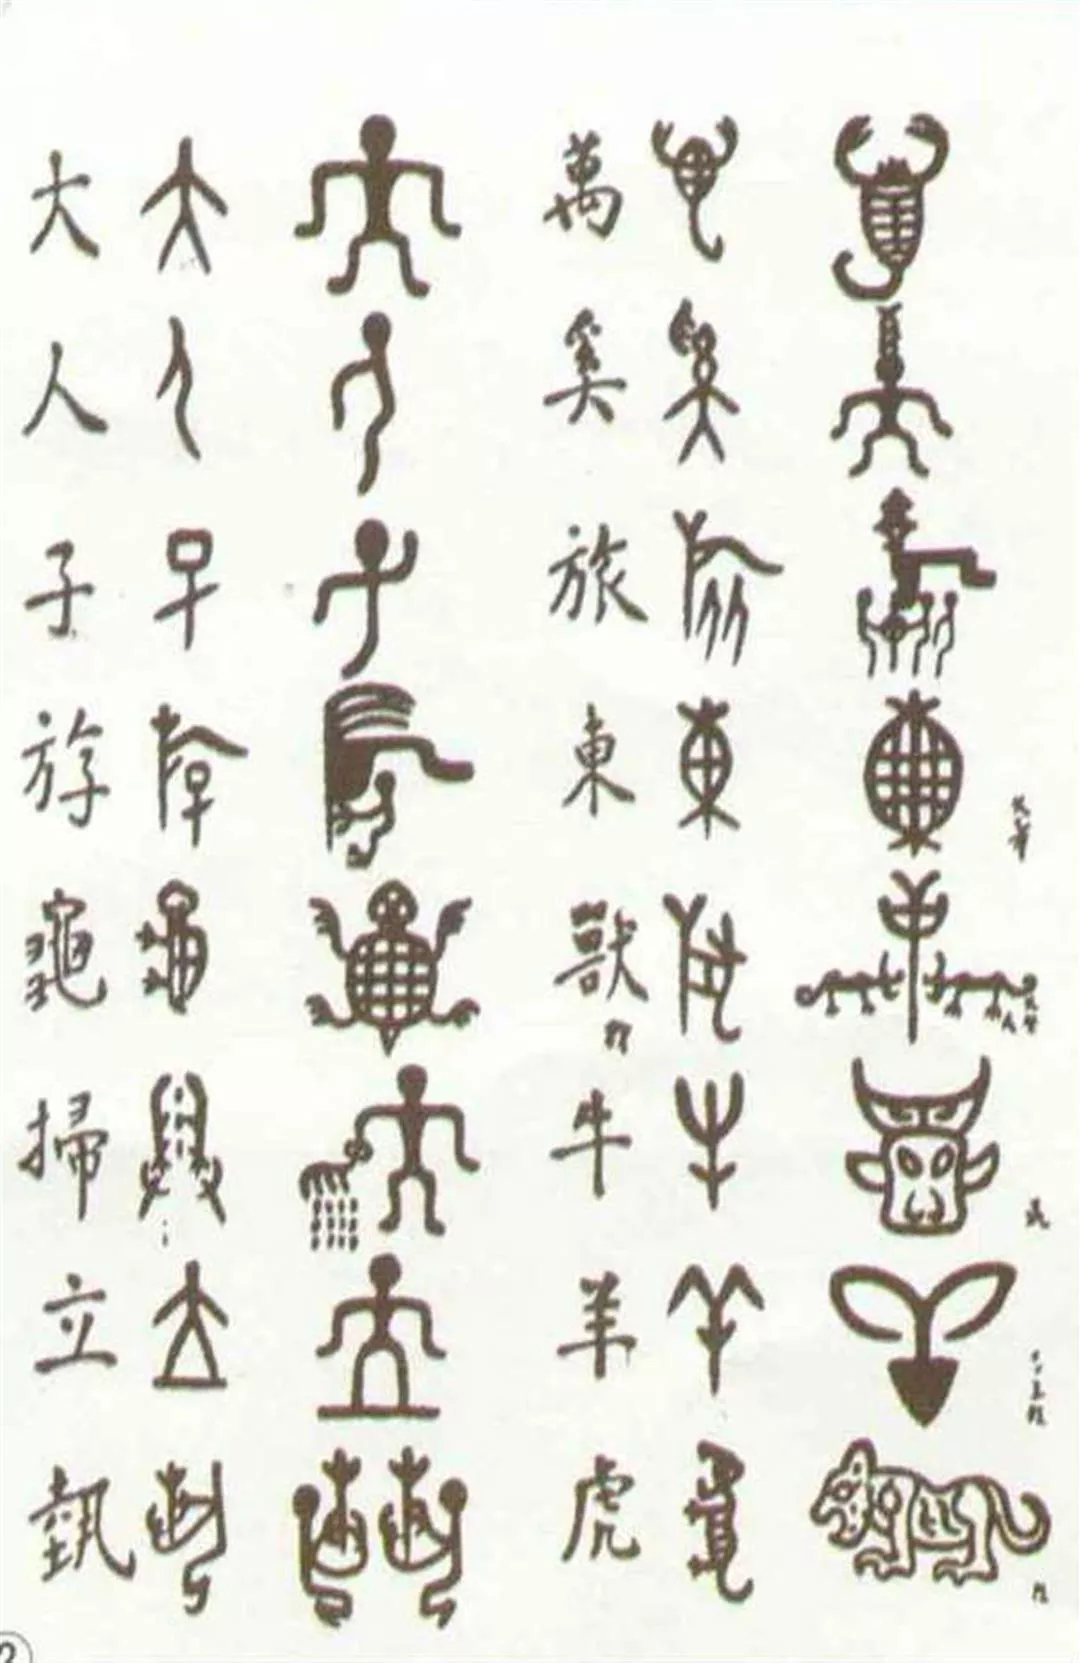 大
人
子
斿
龜
掃
立
執
萬
奚
旅
東
獸
牛
羊
虎